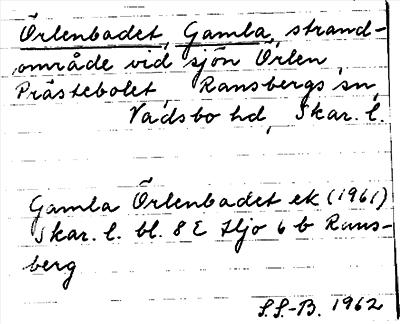 Örlenbadet, Gamla, strand-
område vid sjön Örlen,
Prästebolet, Ransbergs sn,
Vadsbo hd, Skar. l.
Gamla Örlenbadet ek (1961)
Skar. l. bl. 8 E Hjo 6 b Rans-
berg
S.S.-B. 1962